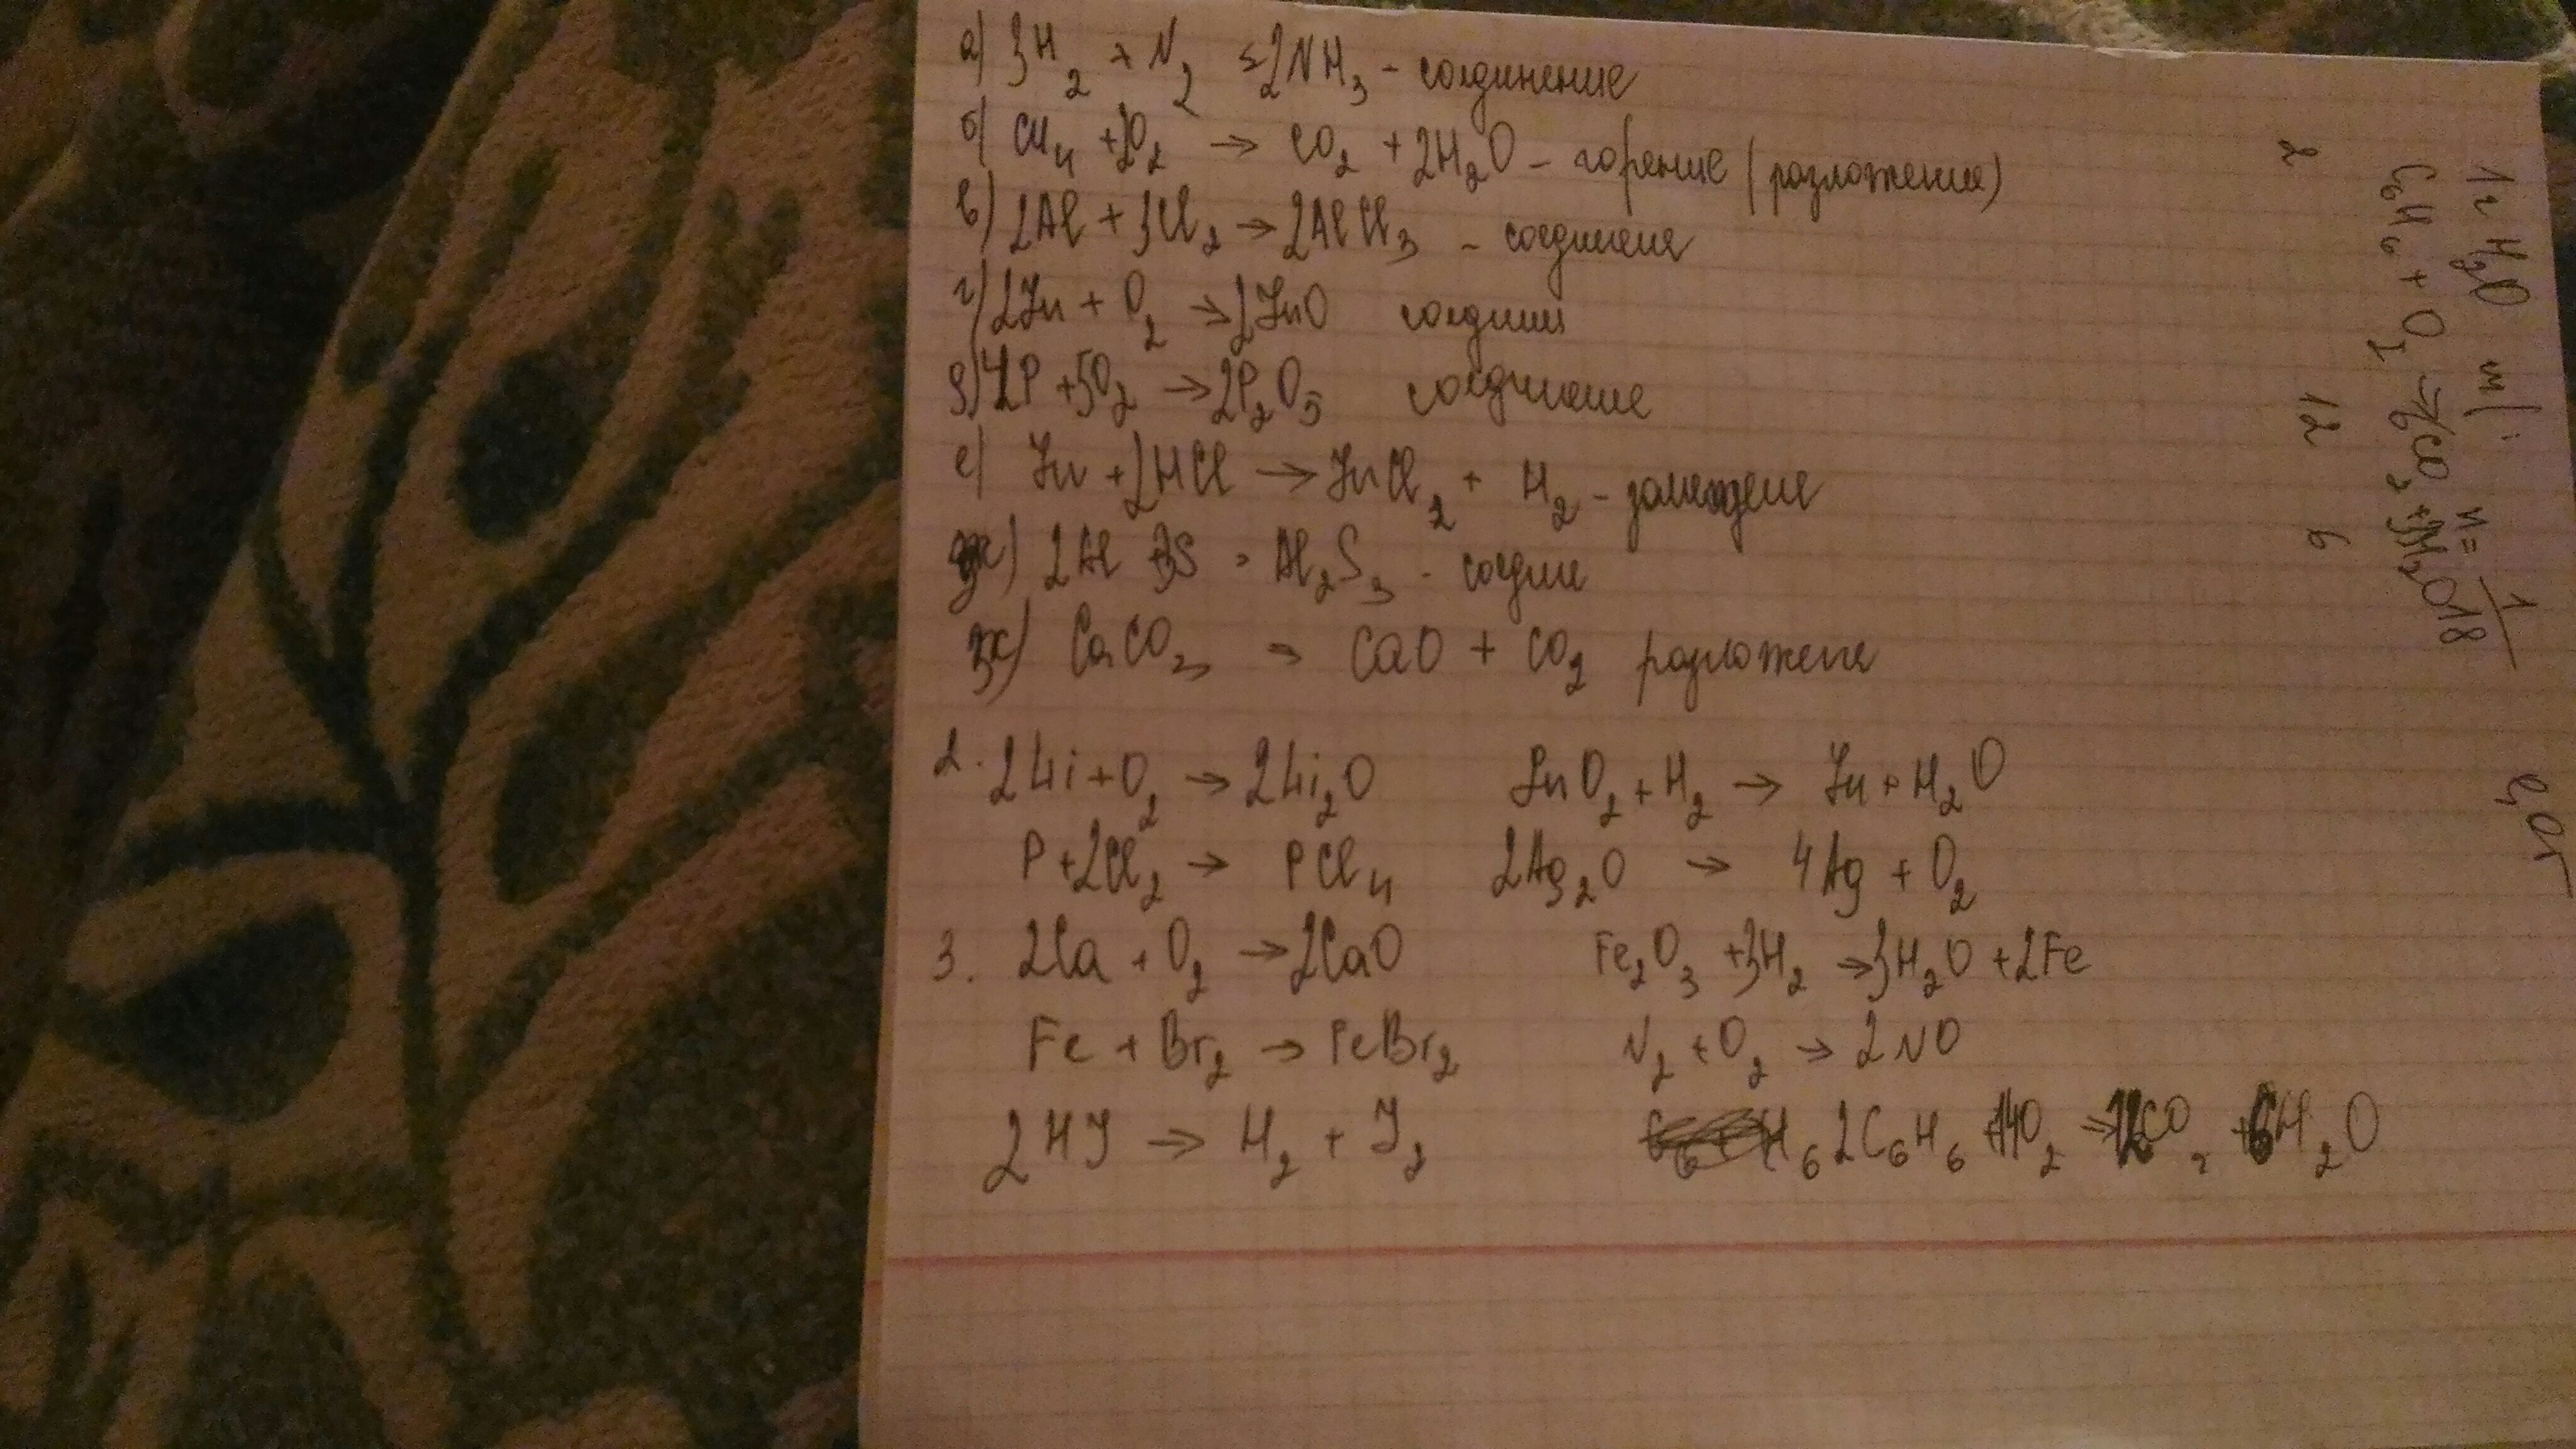 а) 3H2 + N2 ⇆ 2NH3 - соединение
б) CH4 + 2O2 → CO2 + 2H2O - горение (разложение)
в) 2Al + 3Cl2 → 2AlCl3 - соединение
г) 2Zn + O2 → 2ZnO соедин
д) 4P + 5O2 → 2P2O5 соединение
е) Zn + 2HCl → ZnCl2 + H2 - замещение
ж) 2Al + 3S = Al2S3 - соедин
з) CaCO3 = CaO + CO2 разложение
2. 2Li + O2 → 2Li2O ZnO2 + H2 → Zn + H2O
P + 2Cl2 → PCl4 2Ag2O → 4Ag + O2
3. 2Ca + O2 → 2CaO Fe2O3 + 3H2 → 3H2O + 2Fe
Fe + Br2 → FeBr2 N2 + O2 → 2NO
2HJ → H2 + J2 H6 2C6H6 + 14O2 → 12CO2 + 6H2O
1г H2O m(: n= 1/18
C6H6 + O2 → 6CO2 + 3H2O
2 12 6